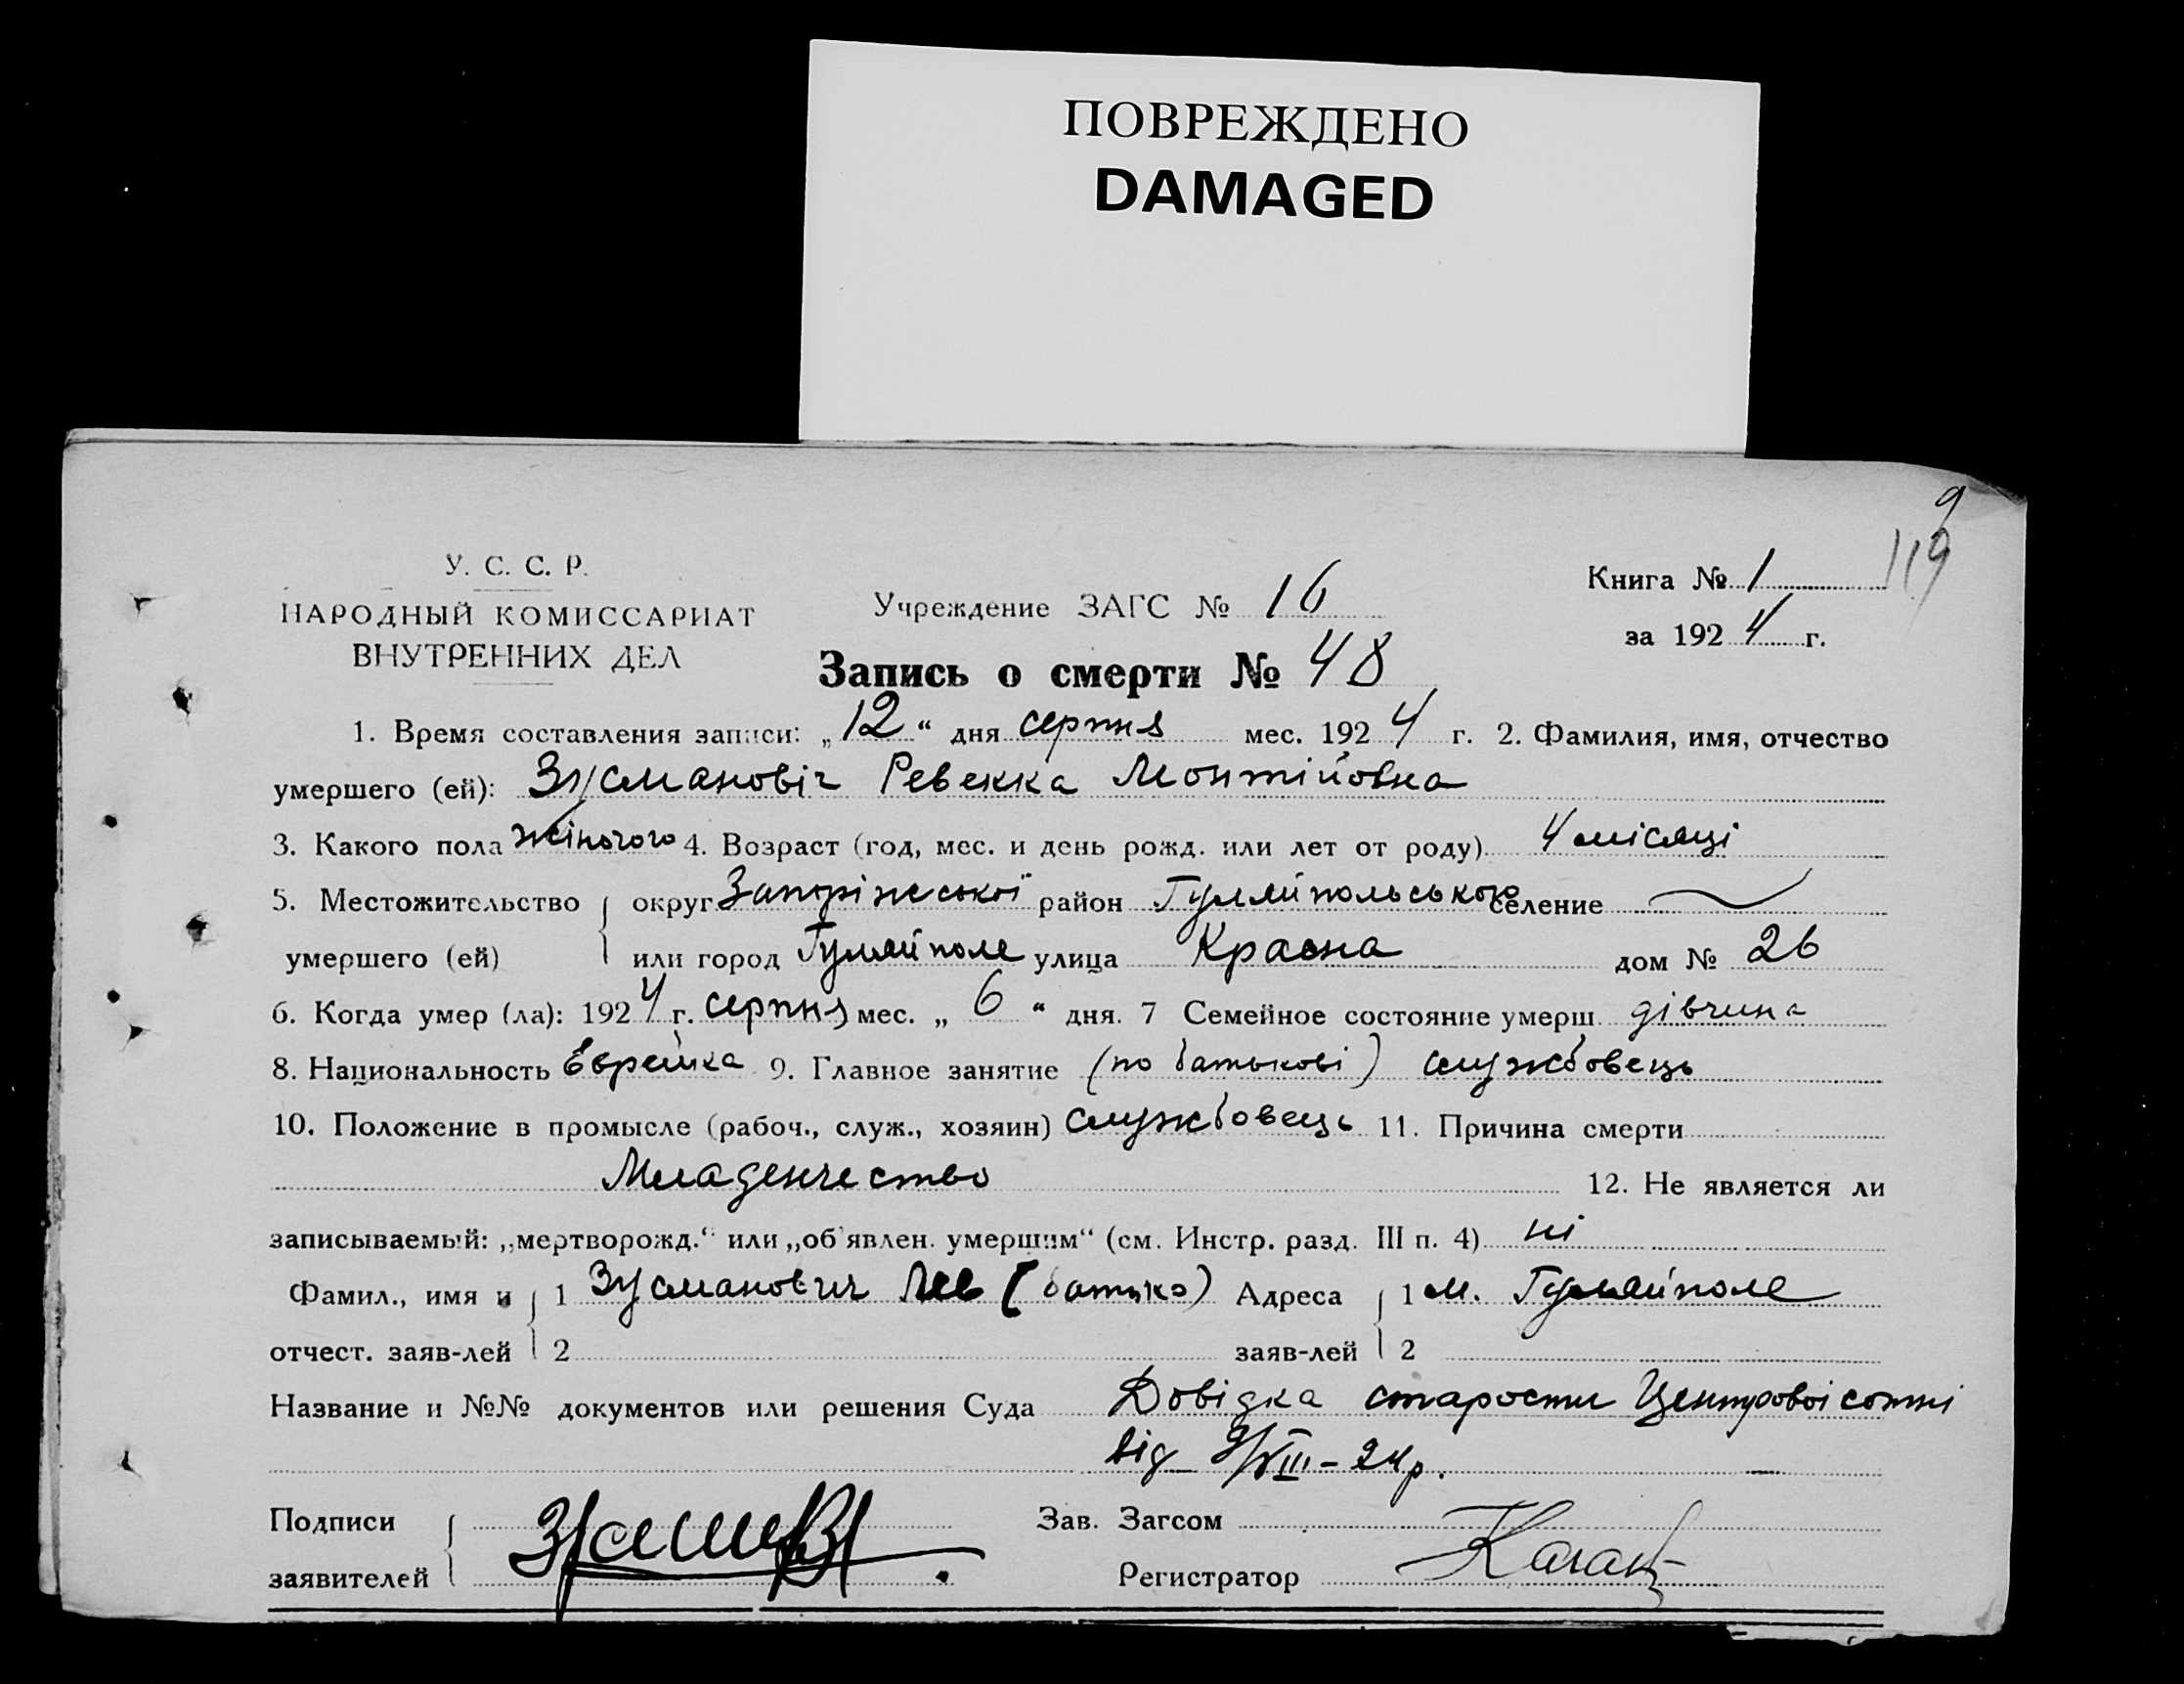 ПОВРЕЖДЕНО
DAMAGED
9
119
У. С. С. Р.
НАРОДНЫЙ КОМИССАРИАТ
ВНУТРЕННИХ ДЕЛ
Учреждение ЗАГС № 16
Книга № 1
за 1924 г.
Запись о смерти № 48
1. Время составления записи: „12“ дня серпня мес. 1924 г. 2. Фамилия, имя, отчество
умершего (ей): Зусмановіч Ревекка Монтійовна
3. Какого пола жіночого 4. Возраст (год, мес. и день рожд. или лет от роду) 4 місяці
5. Местожительство округ Запоріжської район Гуляйпольського селение
умершего (ей) или город Гуляйполе улица Красна дом № 26
6. Когда умер (ла): 1924 г. серпня мес. „ 6 “ дня. 7 Семейное состояние умерш. дівчина
8. Национальность Еврейка 9. Главное занятие (по батькові) службовець
10. Положение в промысле (рабоч., служ., хозяин) службовець 11. Причина смерти
Младенчество 12. Не является ли
записываемый: „мертворожд.“ или „об'явлен. умершим“ (см. Инстр. разд. III п. 4) ні
Фамил., имя и 1 Зусманович Лев (батько) Адреса 1 м. Гуляйполе
отчест. заяв-лей 2 заяв-лей 2
Название и №№ документов или решения Суда Довідка старости Центрової сотні
від 9/VIII-24р.
Подписи Зав. Загсом
заявителей Регистратор